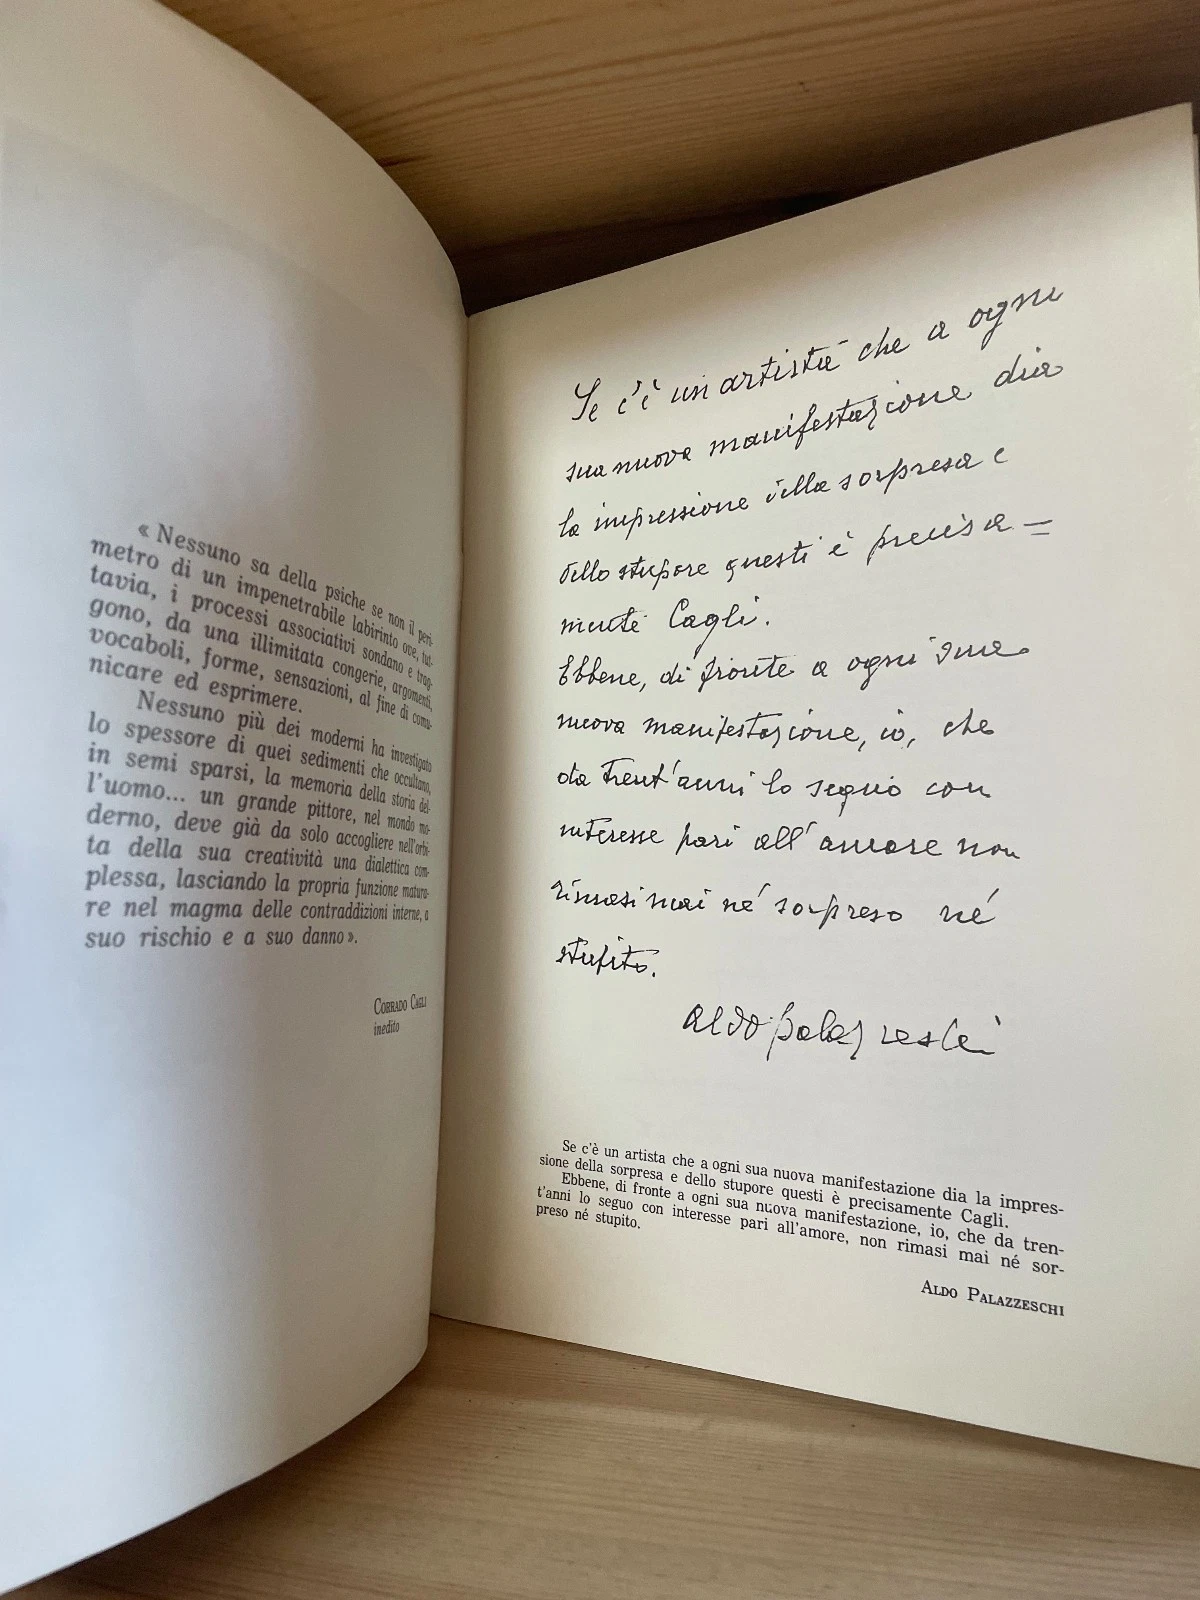 « Nessuno sa della psiche se non il peri-
metro di un impenetrabile labirinto ove, tut-
tavia, i processi associativi sondano e trag-
gono, da una illimitata congerie, argomenti,
vocaboli, forme, sensazioni, al fine di comu-
nicare ed esprimere.
Nessuno più dei moderni ha investigato
lo spessore di quei sedimenti che occultano,
in semi sparsi, la memoria della storia del-
l'uomo... un grande pittore, nel mondo mo-
derno, deve già da solo accogliere nell'orbi-
ta della sua creatività una dialettica com-
plessa, lasciando la propria funzione matura-
re nel magma delle contraddizioni interne, a
suo rischio e a suo danno».
Corrado Cagli
inedito
Se c'è un artista che a ogni
sua nuova manifestazione dia
la impressione della sorpresa e
dello stupore questi è precisa=
mente Cagli.
Ebbene, di fronte a ogni sua
nuova manifestazione, io, che
da trent'anni lo seguo con
interesse pari all'amore non
rimasi mai né sorpreso né
stupito.
Aldo Palazzeschi
Se c'è un artista che a ogni sua nuova manifestazione dia la impres-
sione della sorpresa e dello stupore questi è precisamente Cagli.
Ebbene, di fronte a ogni sua nuova manifestazione, io, che da tren-
t'anni lo seguo con interesse pari all'amore, non rimasi mai né sor-
preso né stupito.
Aldo Palazzeschi